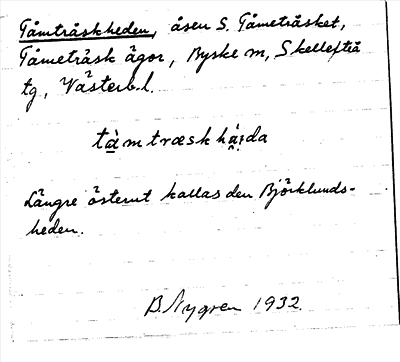 Tåmträskheden, åsen S. Tåmeträsket,
Tåmeträsk ägor, Byske sn, Skellefteå
tg, Västerb.l.
tà̱mtræskhä̀ịda
Längre österut kallas den Björklunds-
heden.
B. Nygren 1932.